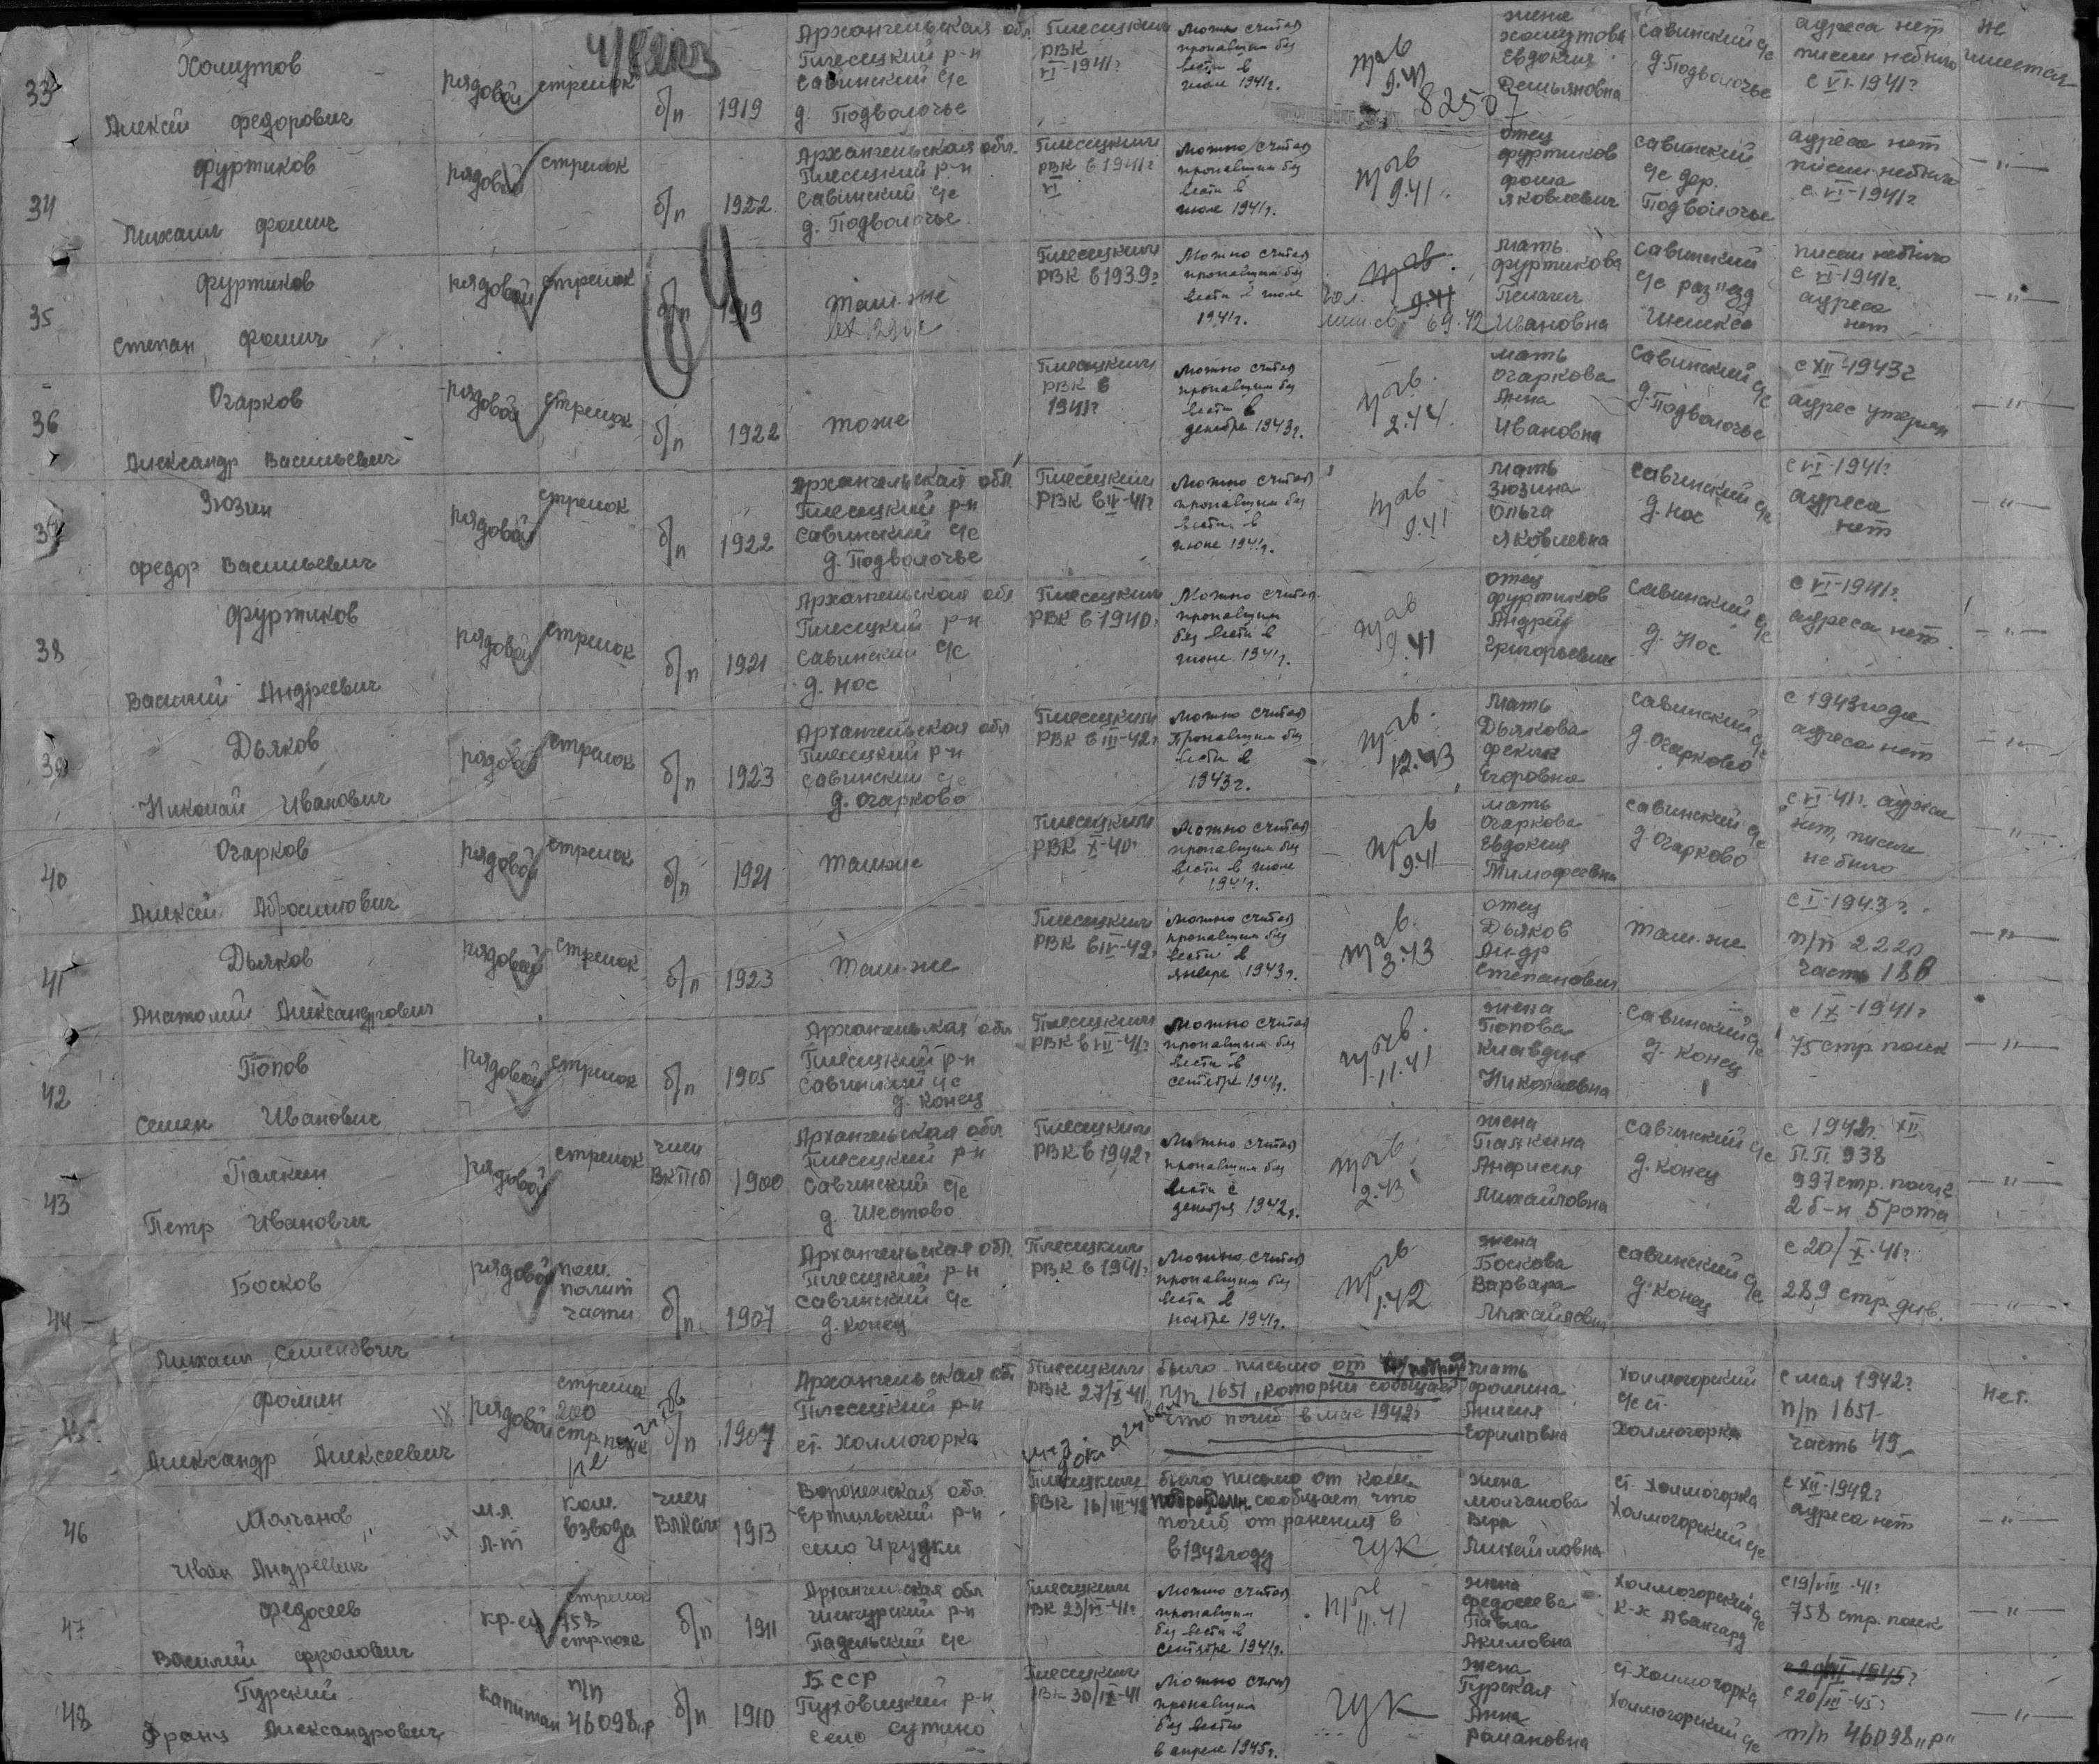 33
Хомутов
Алексей Федорович
рядовой стрелок
б/п 1919
Архангельская обл.
Плесецкий р-н
Савинский с/с
д. Подволочье
Плесецким
РВК
VI-1941г
Можно считать
пропавшим без
вести в
июле 1941г.
пр. б/в
9.41
82507
жена
Хомутова
Евдокия
Демьяновна
Савинский с/с
д. Подволочье
адреса нет
писем не было
с VI-1941г
не
имеется
34
Фуртиков
Михаил Фомич
рядовой стрелок
б/п 1922
Архангельская обл.
Плесецкий р-н
Савинский с/с
д. Подволочье
Плесецким
РВК в 1941г
VI
Можно считать
пропавшим без
вести в
июле 1941г.
9.41.
отец
Фуртиков
Фома
Яковлевич
Савинский
с/с дер.
Подволочье
адреса нет
писем не было
с VI-1941г
—"—
35
Фуртиков
Степан Фомич
рядовой стрелок
б/п 1919
Там-же
Плесецким
РВК в 1939г
Можно считать
пропавшим без
вести в июле
1941г.
9.41
69.42
мать
Фуртикова
Пелагея
Ивановна
Савинский
с/с раз"езд
Шелекса
писем не было
с VI-1941г.
адреса
нет
—"—
36
Огарков
Александр Васильевич
рядовой стрелок
б/п 1922
тоже
Плесецким
РВК в
1941г
Можно считать
пропавшим без
вести в
декабре 1943г.
2.44.
мать
Огаркова
Анна
Ивановна
Савинский с/с
д. Подволочье
с XII-1943г
адрес утерян
—"—
37
Зюзин
Федор Васильевич
рядовой стрелок
б/п 1922
Архангельская обл.
Плесецкий р-н
Савинский с/с
д. Подволочье
Плесецким
РВК в VI-41г
Можно считать
пропавшим без
вести в
июле 1941г.
9.41
мать
Зюзина
Ольга
Яковлевна
Савинский с/с
д. Нос
с VI-1941г
адреса
нет
—"—
38
Фуртиков
Василий Андреевич
рядовой стрелок
б/п 1921
Архангельская обл
Плесецкий р-н
Савинский с/с
д. Нос
Плесецким
РВК в 1940г
Можно считать
пропавшим
без вести в
июле 1941г.
9.41
отец
Фуртиков
Андрей
Григорьевич
Савинский с/с
д. Нос
с VI-1941г.
адреса нет
—"—
39
Дьяков
Николай Иванович
рядовой стрелок
б/п 1923
Архангельская обл
Плесецкий р-н
Савинский с/с
д. Огарково
Плесецким
РВК в III-42г
Можно считать
пропавшим без
вести в
1943г.
12.43
мать
Дьякова
Фекла
Егоровна
Савинский с/с
д. Огарково
с 1943 года
адреса нет
—"—
40
Огарков
Алексей Абрамович
рядовой стрелок
б/п 1921
Там-же
Плесецким
РВК X-40г
Можно считать
пропавшим без
вести в июле
1941г.
9.41
мать
Огаркова
Евдокия
Тимофеевна
Савинский с/с
д. Огарково
с VI-41г. адреса
нет, писем
не было
—"—
41
Дьяков
Анатолий Александрович
рядовой стрелок
б/п 1923
Там-же
Плесецким
РВК в IV-42г
Можно считать
пропавшим без
вести в
январе 1943г.
3.43
отец
Дьяков
Ал-др
Степанович
Там-же
с I-1943г.
п/п 2220
часть 188
—"—
42
Попов
Семен Иванович
рядовой стрелок
б/п 1905
Архангельская обл
Плесецкий р-н
Савинский с/с
д. Конец
Плесецким
РВК в VII-41г
Можно считать
пропавшим без
вести в
сентябре 1941г.
11.41
жена
Попова
Клавдия
Николаевна
Савинский с/с
д. Конец
с IX-1941г
75 стр полк
—"—
43
Палкин
Петр Иванович
рядовой стрелок
член
ВКП(б) 1900
Архангельская обл
Плесецкий р-н
Савинский с/с
д. Шестово
Плесецким
РВК в 1942г
Можно считать
пропавшим без
вести с
декабря 1942г.
2.43
жена
Палкина
Анфисия
Михайловна
Савинский с/с
д. Конец
с 1942г. XII
П.П. 938
997 стр. полк
2 б-н 5 рота
—"—
44
Босков
Михаил Семенович
рядовой
пом.
полит
части
б/п 1907
Архангельская обл.
Плесецкий р-н
Савинский с/с
д. Конец
Плесецким
РВК в 1941г
Можно считать
пропавшим без
вести в
ноябре 1941г.
1.42
жена
Боскова
Варвара
Михайловна
Савинский с/с
д. Конец
с 20/X-41г
289 стр. див.
—"—
45
Фомин
Александр Алексеевич
рядовой
стрелк
280
стр. полк
б/п 1907
Архангельская обл
Плесецкий р-н
ст. Холмогорка
Плесецким
РВК 27/X-41
было письмо от
п/п 1651, который сообщает
что погиб в мае 1942г
мать
Фомина
Анисия
Ефимовна
Холмогорский
с/с ст.
Холмогорка
с мая 1942г
п/п 1651
часть 49
Нет.
46
Молчанов
Иван Андреевич
мл.
л-т
ком.
взвода
член
ВЛКСМ 1913
Воронежская обл
Ертильский р-н
село Ируцки
Плесецким
РВК 16/III-42
было письмо от ком
сообщает, что
погиб от ранения в
в 1942 году
ГУК
жена
Молчанова
Вера
Михайловна
ст. Холмогорка
Холмогорский с/с
с XII-1942г
адреса нет
—"—
47
Федосеев
Василий Фролович
кр-ец
стрелок
758
стр. полк
б/п 1911
Архангельская обл
Шенкурский р-н
Падельский с/с
Плесецким
РВК 23/VI-41г
Можно считать
пропавшим
без вести в
сентябре 1941г.
11.41
жена
Федосеева
Павла
Акимовна
Холмогорский с/с
к-х Авангард
с 19/VIII-41г
758 стр. полк
—"—
48
Гурский
Франц Александрович
капитан
п/п
46098„р
б/п 1910
БССР
Пуховицкий р-н
село Сутино
Плесецким
РВК 30/IX-41
Можно счит
пропавшим
без вести
в апреле 1945г.
ГУК
жена
Гурская
Анна
Романовна
ст. Холмогорка
Холмогорский с/с
с 20/III-1945г
с 20/III-45г
п/п 46098„Р"
—"—